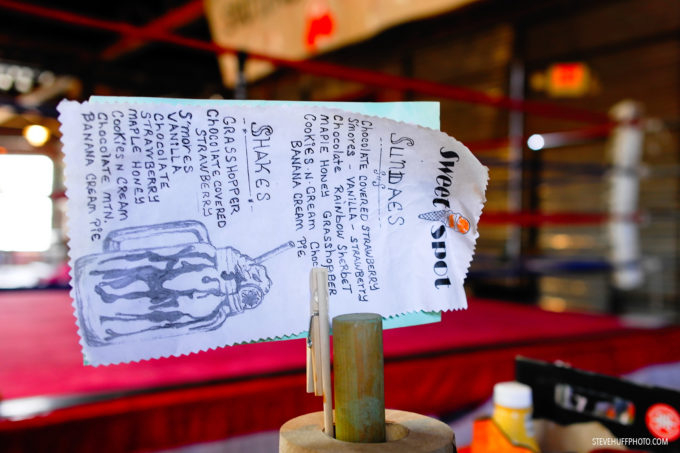 Sweet Spot
SUNDAES
CHOCOLATE COVERED STRAWBERRY
S'MORES - VANILLA - STRAWBERRY
CHOCOLATE RAINBOW SHERBET
MAPLE HONEY GRASSHOPPER
COOKIES N CREAM CHOC
BANANA CREAM PIE
SHAKES
GRASSHOPPER
CHOCOLATE COVERED
STRAWBERRY
S'MORES
VANILLA
CHOCOLATE
STRAWBERRY
MAPLE HONEY
COOKIES N CREAM
CHOCOLATE MTN.
BANANA CREAM PIE
STEVEHUFFPHOTO.COM